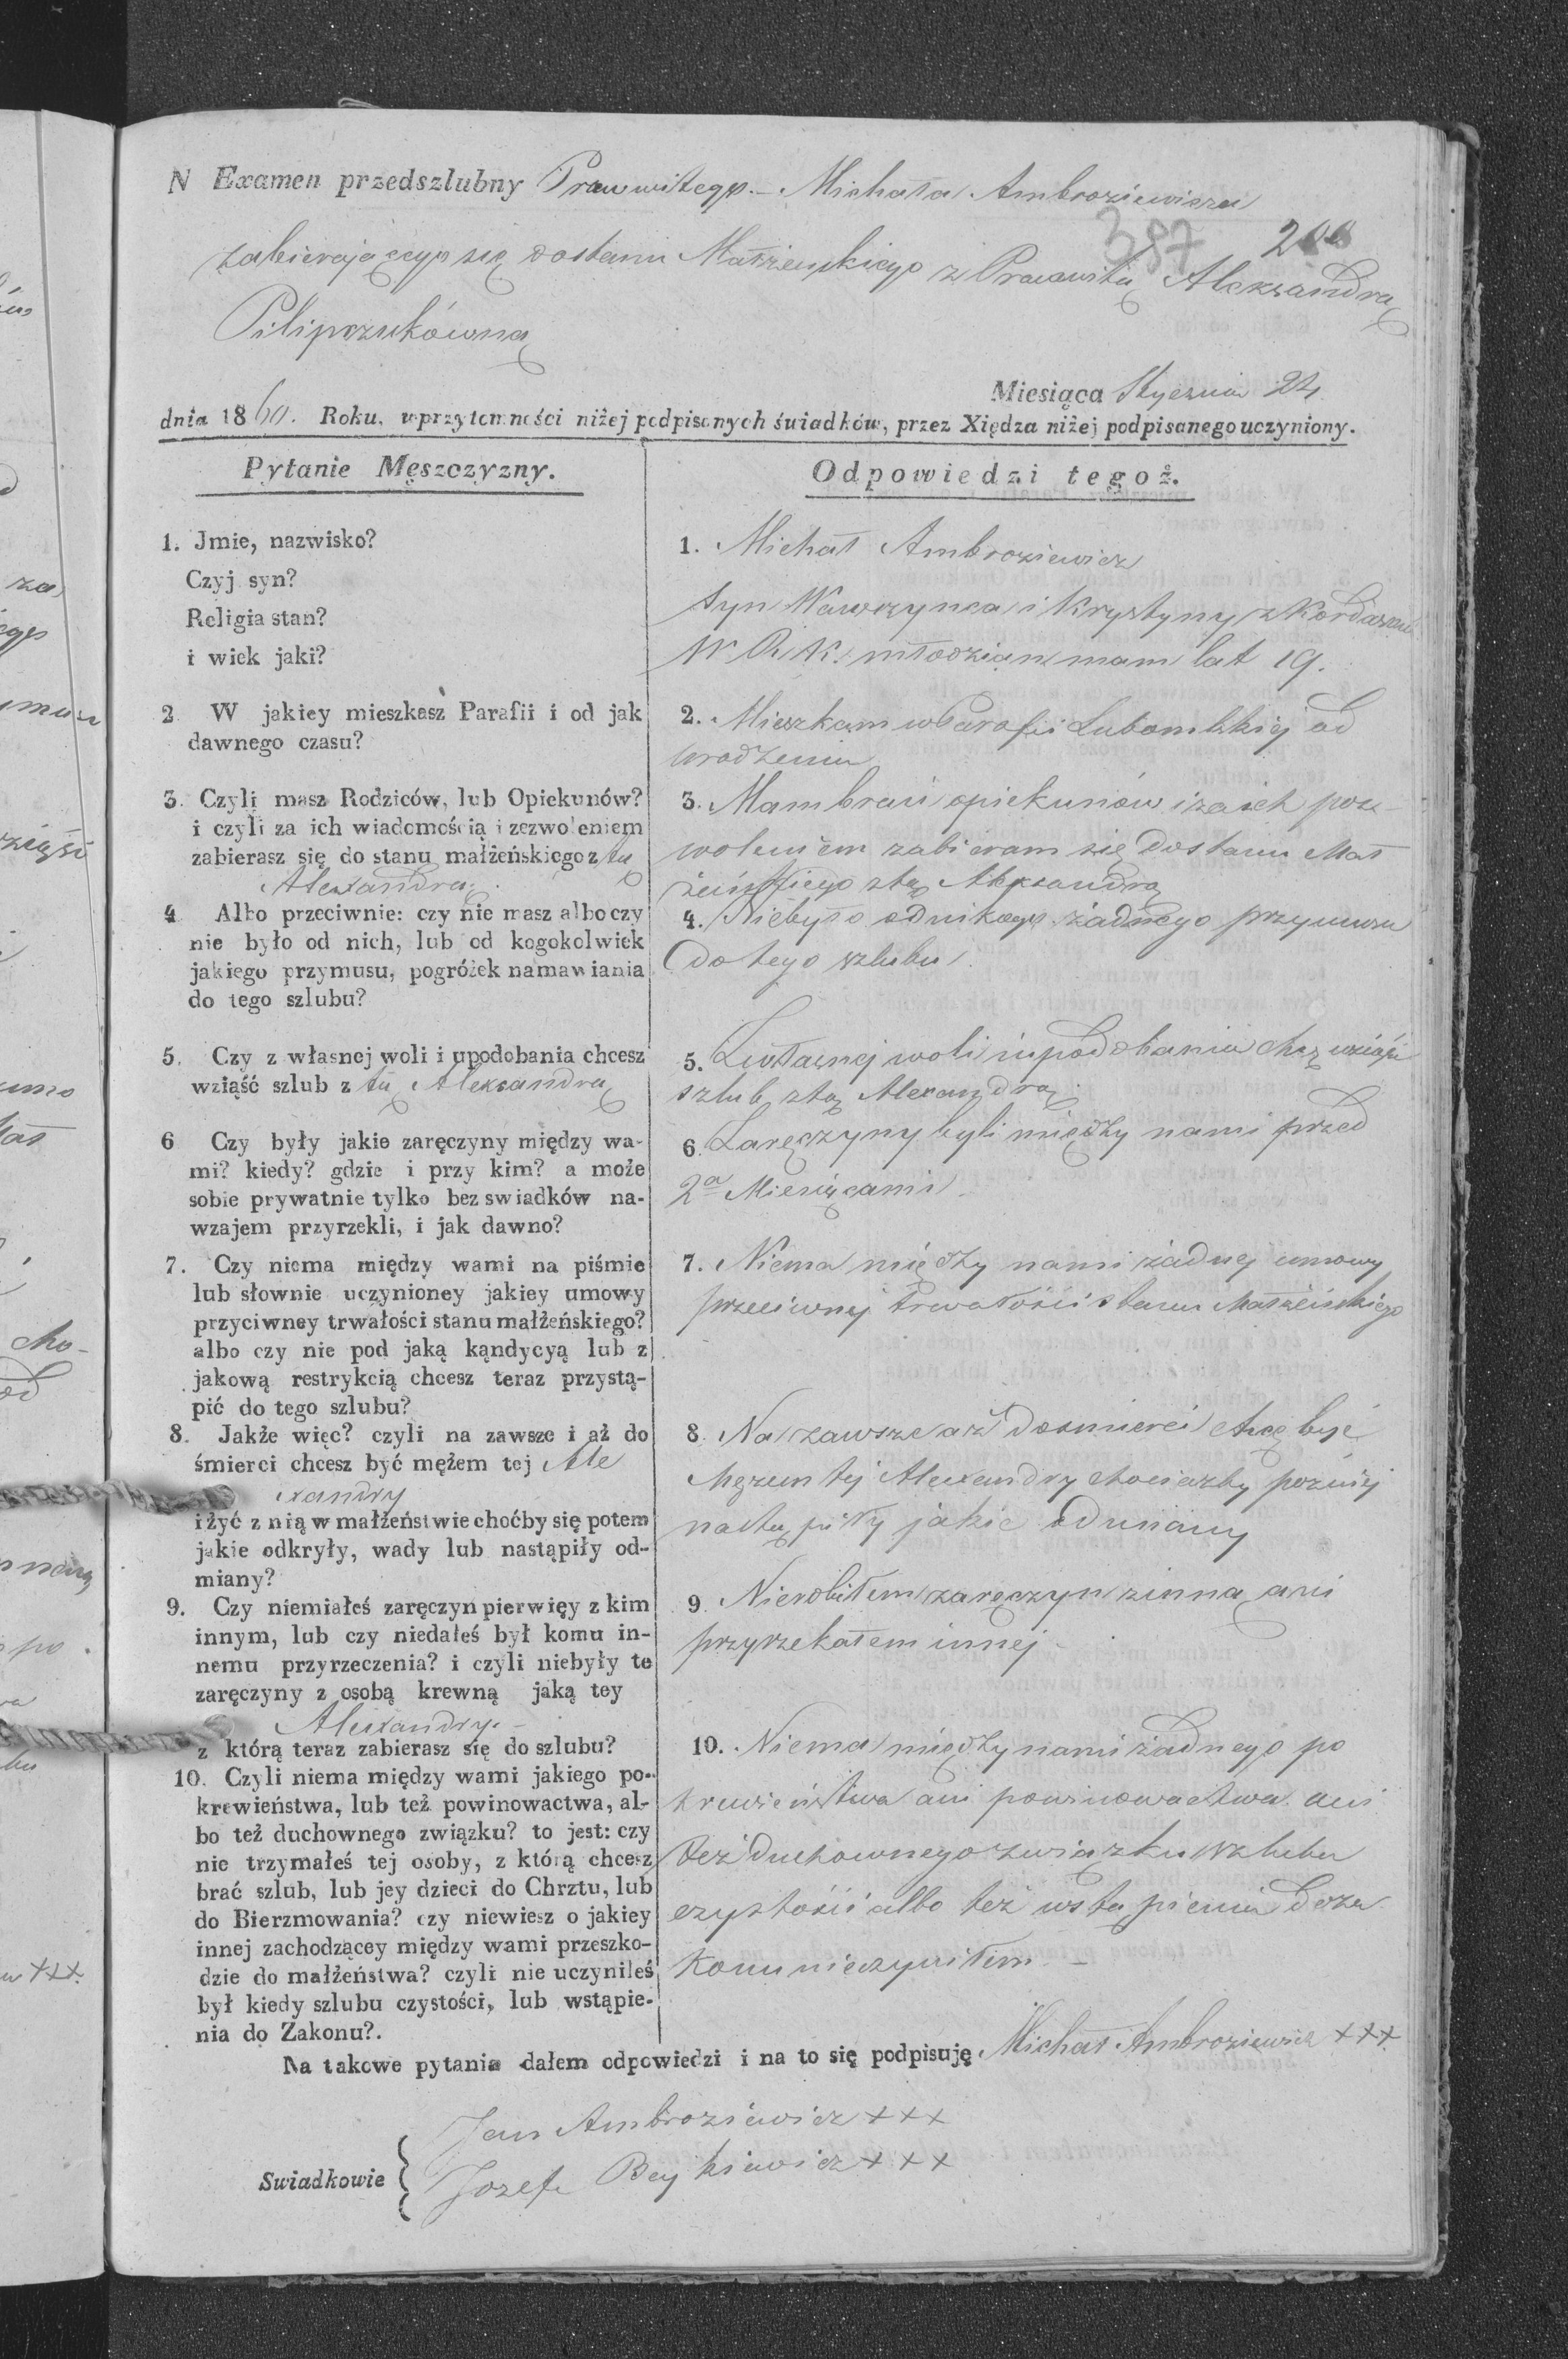 N Examen przedszlubny Prawowitego Michała Ambroziewicza
387 200
zabierającego się dostanu Małżeńskiego z Prawowitą Alexandrą
Pilipczukówną
Miesiąca Stycznia 24
dnia 1860. Roku, w przytomności niżej podpisanych świadków, przez Xiędza niżej podpisanego uczyniony.
Pytanie Męszczyzny.
1. Jmie, nazwisko?
Czyj syn?
Religia stan?
i wiek jaki?
2 W jakiey mieszkasz Parafii i od jak
dawnego czasu?
3. Czyli masz Rodziców, lub Opiekunów?
i czyli za ich wiadomością i zezwoleniem
zabierasz się do stanu małżeńskiego z tą
Alexandrą
4 Albo przeciwnie: czy nie masz albo czy
nie było od nich, lub od kogokolwiek
jakiego przymusu, pogróżek namawiania
do tego szlubu?
5. Czy z własnej woli i upodobania chcesz
wziąść szlub z tą Alexandrą
6 Czy były jakie zaręczyny między wa-
mi? kiedy? gdzie i przy kim? a może
sobie prywatnie tylko bez swiadków na-
wzajem przyrzekli, i jak dawno?
7. Czy niema między wami na piśmie
lub słownie uczynioney jakiey umowy
przyciwney trwałości stanu małżeńskiego?
albo czy nie pod jaką kąndycyą lub z
jakową restrykcią chcesz teraz przystą-
pić do tego szlubu?
8. Jakże więc? czyli na zawsze i aż do
śmierci chcesz być mężem tej Ale
xandry
i żyć z nią w małżeństwie choćby się potem
jakie odkryły, wady lub nastąpiły od-
miany?
9. Czy niemiałeś zaręczyn pierwięy z kim
innym, lub czy niedałeś był komu in-
nemu przyrzeczenia? i czyli niebyły te
zaręczyny z osobą krewną jaką tey
Alexandry.
z którą teraz zabierasz się do szlubu?
10. Czyli niema między wami jakiego po-
krewieństwa, lub też powinowactwa, al-
bo też duchownego związku? to jest: czy
nie trzymałeś tej osoby, z którą chcesz
brać szlub, lub jey dzieci do Chrztu, lub
do Bierzmowania? czy niewiesz o jakiey
innej zachodzącey między wami przeszko-
dzie do małżeństwa? czyli nie uczyniłeś
był kiedy szlubu czystości, lub wstąpie-
nia do Zakonu?.
Odpowiedzi tegoż.
1. Michał Ambroziewicz
Syn Wawrzynca i Krystyny z
W. R. K. młodzian mam lat 19.
2. Mieszkam w Parafii Lubomlskiej od
urodzenia
3. Mam braci opiekunów i za ich poz
woleniem zabieram się dostanu Mał
żeńskiego ztą Alexandrą
4. Niebyło odnikogo żadnego przymusu
do tego szlubu.
5. Zwłasnej woli i upodobania chcę wziąść
szlub ztą Alexandrą.
6. Zaręczyny byli między nami przed
2a Miesiącami.
7. Niema między nami żadnej umowy
przeciwnej trwałości stanu Małżeńskiego
8. Na zawsze aż dosmierci chcę być
Mężem tej Alexandry chociażby pozniej
nastąpiły jakie odmiany
9. Nierobiłem zaręczyn zinną ani
przyrzekałem innej
10. Niema między nami żadnego po
krewieństwa ani powinowactwa ani
też duchownego związku szlubu
czystości albo też wstąpienia doza
konu nieczyniłem.
Na takowe pytania dałem odpowiedzi i na to się podpisuję Michał Ambroziewicz +++
Swiadkowie
Jan Ambroziewicz +++
Jozef +++